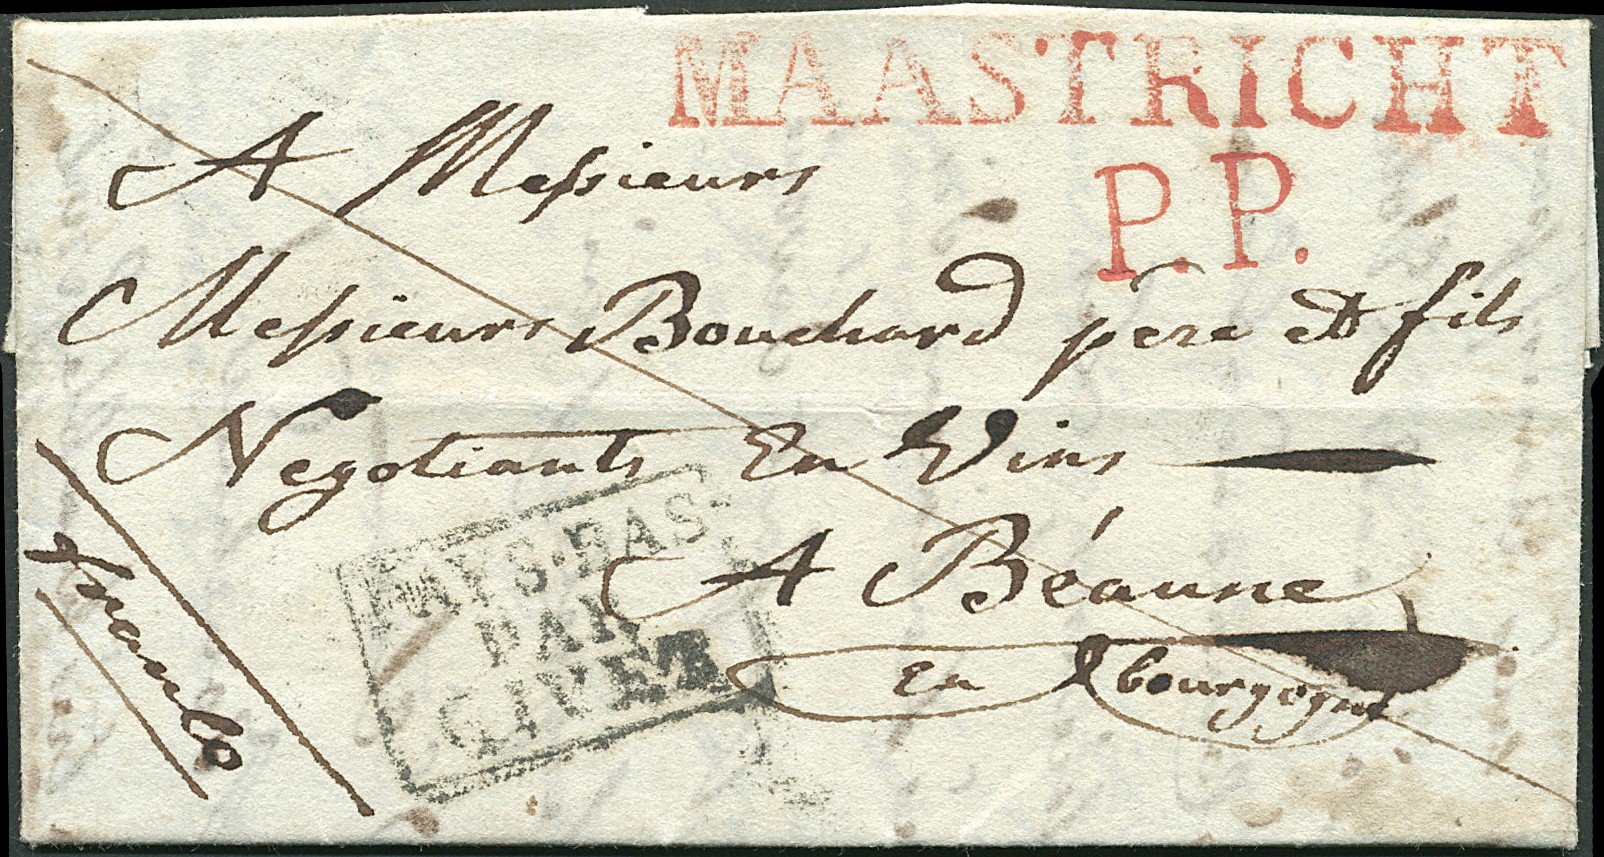 MAASTRICHT
P.P.
A Messieurs
Messieurs Bouchard pere et fils
Negotiants En Vins
A Béaune
En bourgogne
franco
PAYS-BAS
PAR
GIVET